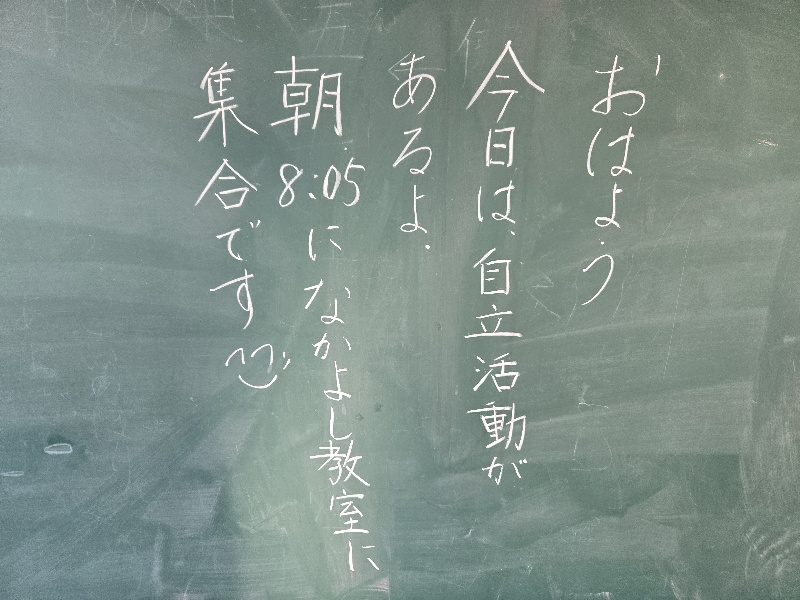 おはよう
今日は、自立活動が
あるよ.
朝8:05になかよし教室に
集合です